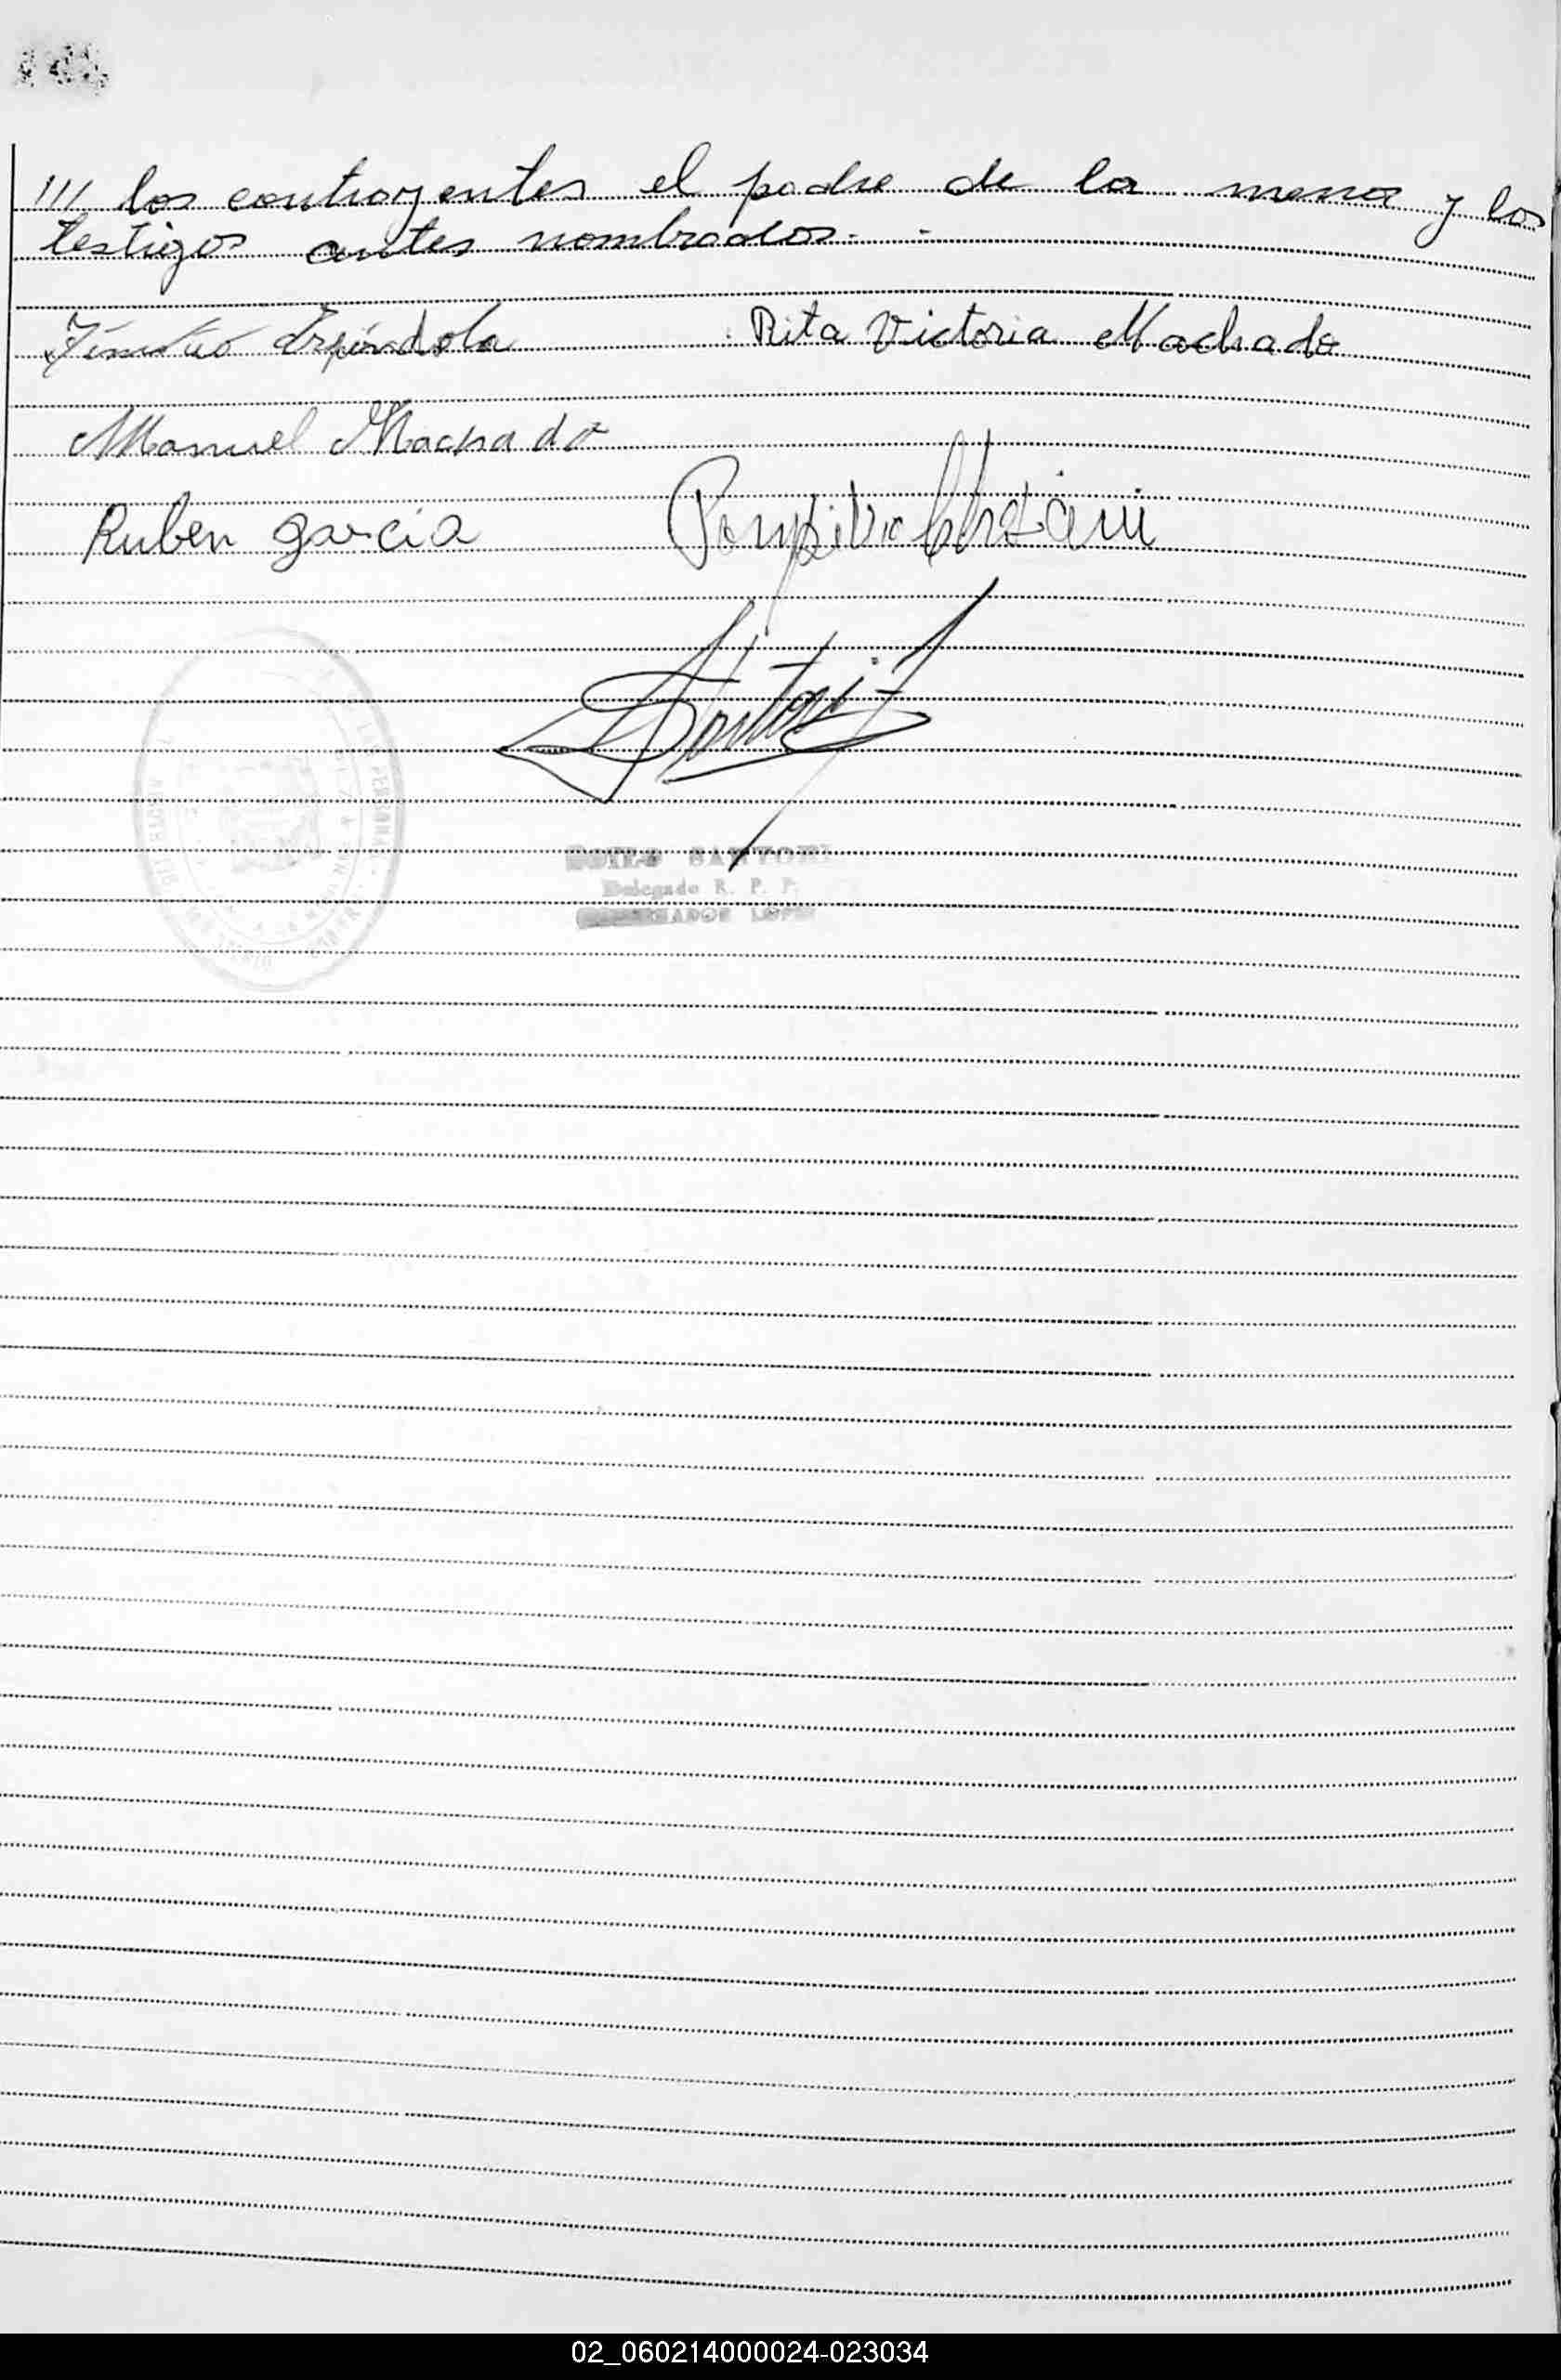 /// los contrayentes el padre de la menor y los
testigos antes nombrados.- -
Espíndola Rita Victoria Machado
Manuel Machado
Ruben garcía Pompilio
Santori
SANTORI
Delegado R. P. P.
LOPEZ
02_060214000024-023034